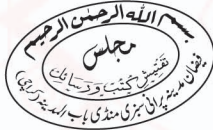 بسم الله الرحمن الرحيم
مجلس
تفتیشِ کتب و رسائل
فیضان مدینہ پرانی سبزی منڈی باب المدینہ (کراچی)